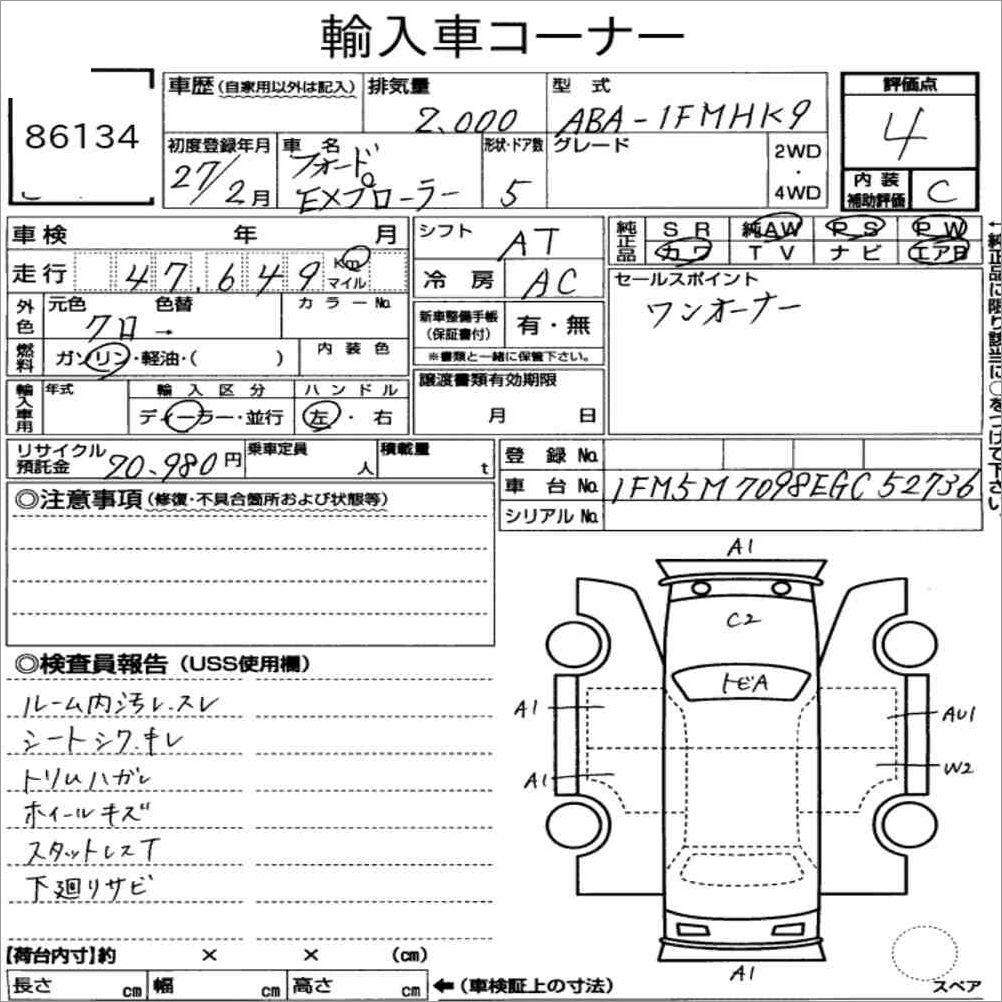 輸入車コーナー
86134
車歴(自家用以外は記入) 排気量 2.000 型式 ABA-1FMHK9
評価点 4
初度登録年月 27/2月 車名 フォード EXプローラー 形状・ドア数 5 グレード 2WD・4WD
内装補助評価 C
車検 年 月
走行 47.649 Km マイル
シフト AT
冷房 AC
純正品 SR 純AW PS PW
カワ TV ナビ エアB
外色 元色 クロ → 色替 カラーNo.
新車整備手帳(保証書付) 有・無
※書類と一緒に保管下さい。
セールスポイント
ワンオーナー
←純正品に限り該当に○をつけて下さい。
燃料 ガソリン・軽油・( ) 内装色
輸入車用 年式 輸入区分 ディーラー・並行 ハンドル 左・右
譲渡書類有効期限
月 日
リサイクル預託金 20.980円 乗車定員 人 積載量 t
登録No.
車台No. 1FM5M7098EGC52736
シリアルNo.
◎注意事項(修復・不具合箇所および状態等)
◎検査員報告(USS使用欄)
ルーム内汚レ.スレ
シートシワ.キレ
トリムハガレ
ホイールキズ
スタットレスT
下廻りサビ
A1
C2
トビA
A1
AU1
A1
W2
A1
【荷台内寸】約 × × (cm)
長さ cm 幅 cm 高さ cm ←(車検証上の寸法)
スペア